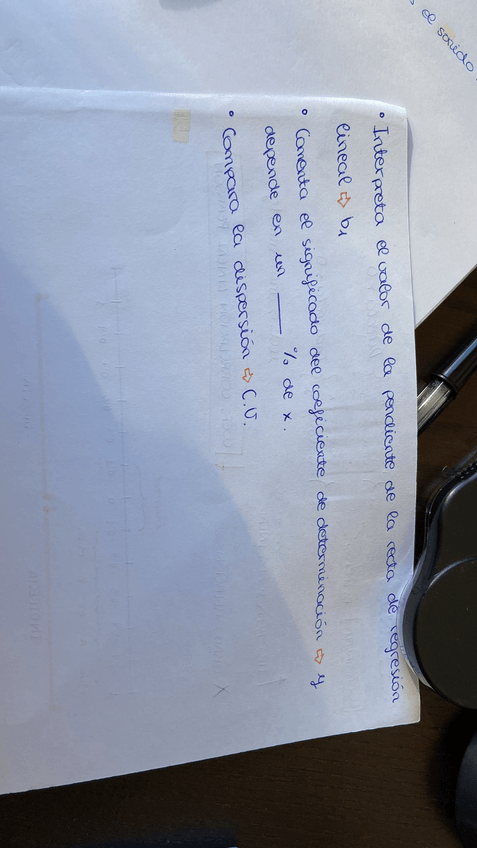 • Interpreta el valor de la pendiente de la recta de regresión
lineal ⇨ b₁
• Comenta el significado del coeficiente de determinación ⇨ y
depende en un ___ % de x.
• Compara la dispersión ⇨ C.V.
el